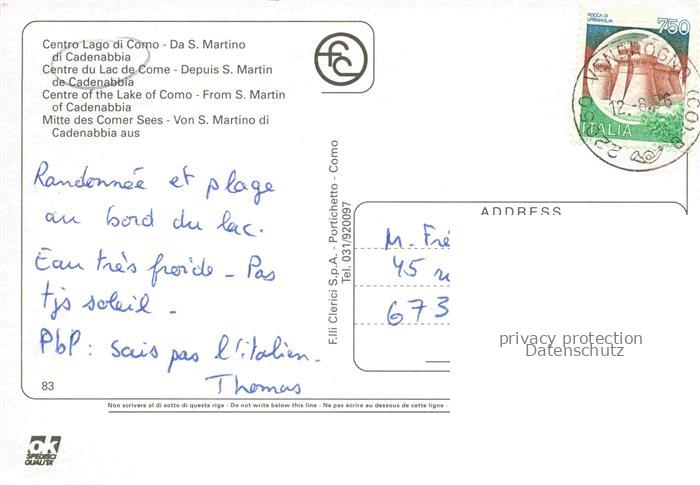 Centro Lago di Como - Da S. Martino
di Cadenabbia
Centre du Lac de Come - Depuis S. Martin
de Cadenabbia
Centre of the Lake of Como - From S. Martin
of Cadenabbia
Mitte des Comer Sees - Von S. Martino di
Cadenabbia aus
Randonnée et plage
au bord du lac.
Eau très froide - Pas
tjs soleil -
PbP: sais pas l'italien.
Thomas
83
Non scrivere al di sotto di questa riga - Do not write below this line - Ne pas écrire au dessous de cette ligne -
OK
SPEDISCI
QUALITÀ
F.lli Clerici S.p.A. - Portichetto - Como
Tel. 031/920097
ROCCA DI
URBISAGLIA
750
ITALIA
22070 VENEROGNO (CO)
12.-8.
ADDRESS
M. Fré
45
673
privacy protection
Datenschutz